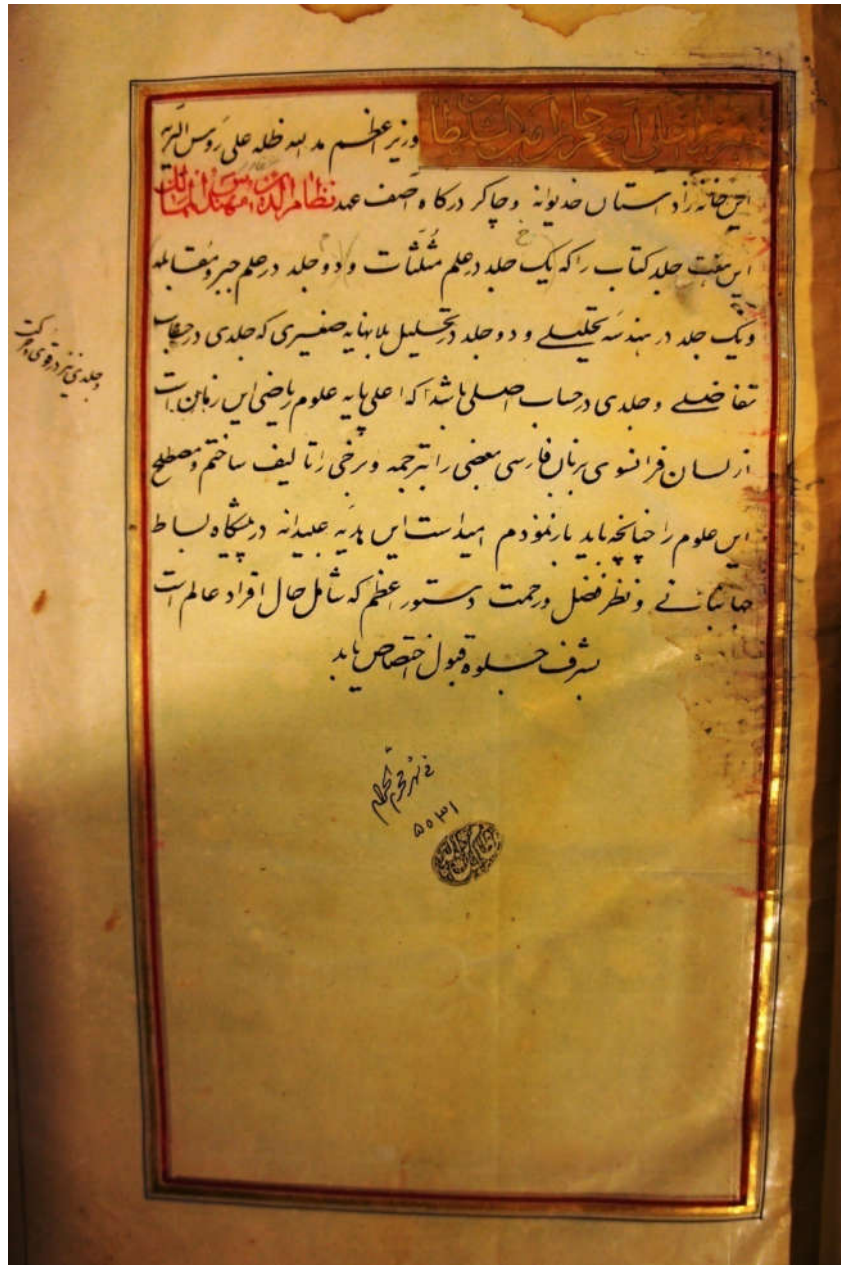 وزیر اعظم مد الله ظله علی رؤس البریه
این خانه زاد استان خدیوانه و چاکر درکاه آصف عهد نظام الدین مهندس الممالک
این هفت جلد کتاب را که یک جلد در علم مثلثات و دو جلد در علم جبر و مقابله
ویک جلد در هندسه تحلیلے و دو جلد در تحلیل بلانهایه صغیری که جلدی در حساب
تفاضلے و جلدی در حساب اصلی باشد که اعلی پایه علوم ریاضی این زمان است
از لسان فرانسوی بزبان فارسی بعضی را ترجمه و برخی را تالیف ساختم و مصطلح
این علوم را چنانچه باید باز نمودم امید است این هدیه عبیدانه در پیشکاه بساط
جهانبانے و نظر فضل و رحمت دستور اعظم که شامل حال افراد عالم است
بشرف جلوه قبول اختصاص یابد
و جلدی نیز در قوی و حرکت
فی شهر محرم الحرام